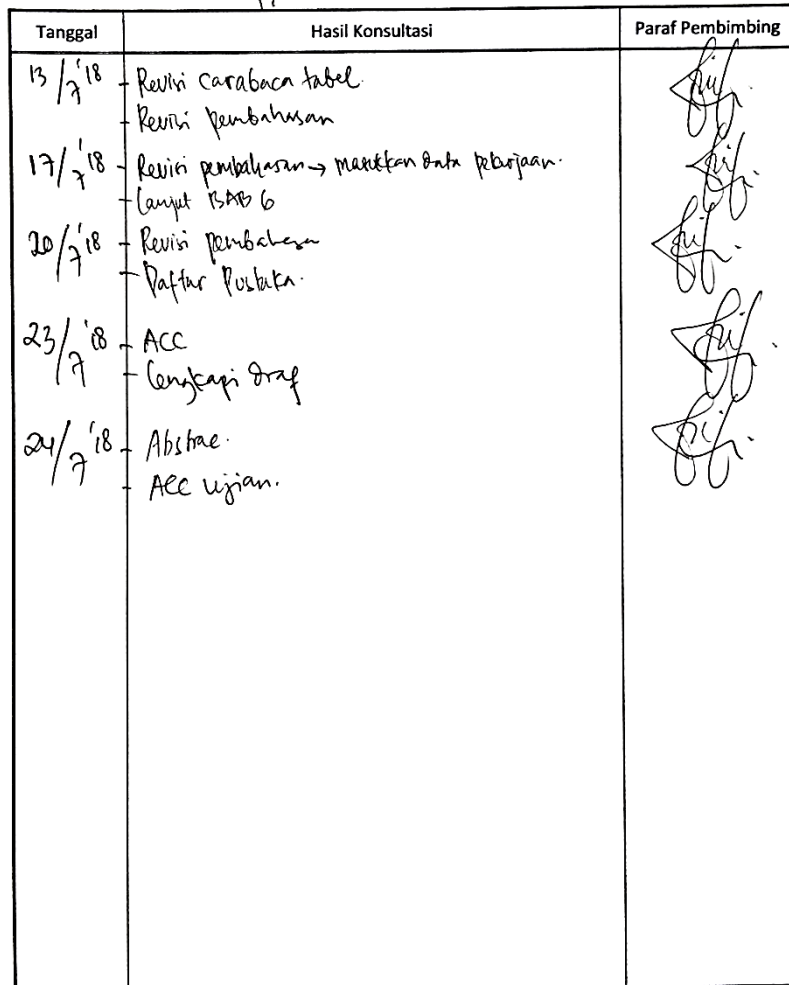 Tanggal Hasil Konsultasi Paraf Pembimbing
13/7 '18 - Revisi carabaca tabel.
- Revisi pembahasan
17/7 '18 - Revisi pembahasan → masukkan data pekerjaan.
- Lanjut BAB 6
20/7 '18 - Revisi pembahasan
- Daftar Pustaka.
23/7 '18 - ACC
- Lengkapi draf
24/7 '18 - Abstrac.
- ACC ujian.